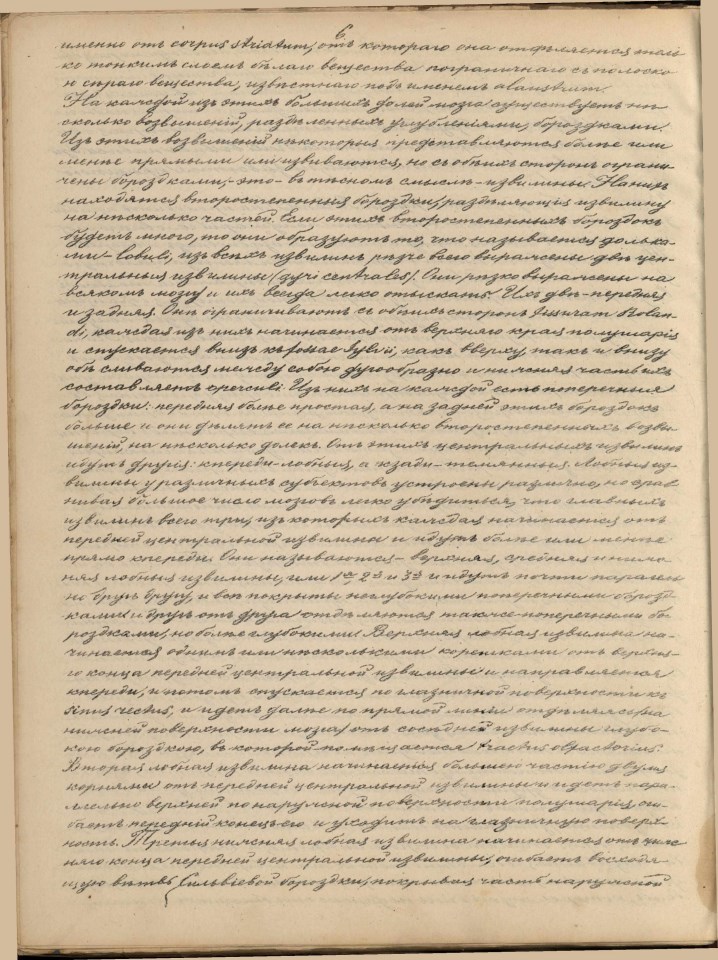 6.
именно отъ corpus striatum, отъ котораго она отдѣляется толь-
ко тонкимъ слоемъ бѣлаго вещества пограничнаго съ полоско
ю сѣраго вещества, извѣстнаго подъ именемъ claustrum.
На каждой изъ этихъ большихъ долей мозга существуетъ нѣ
сколько возвышеній, раздѣленныхъ углубленіями, бороздками.
Изъ этихъ возвышеній нѣкоторыя представляются болѣе или
менѣе прямыми или извиваются, но съ обѣихъ сторонъ ограни-
чены бороздками, – это – въ тѣсномъ смыслѣ – извилины. На нихъ
находятся второстепенныя бороздки, раздѣляющія извилину
на нѣсколько частей. Если этихъ второстепенныхъ бороздокъ
будетъ много, то они образуютъ то, что называется долька-
ми – lobuli, изъ всѣхъ извилинъ рѣзче всего выражены двѣ цен-
тральныя извилины (gyri centrales). Они рѣзко выражены на
всякомъ мозгу и ихъ всегда легко отыскать. Ихъ двѣ – передняя
и задняя. Онѣ ограничиваютъ съ обѣихъ сторонъ fissuram Rolan-
di, каждая изъ нихъ начинается отъ верхняго края полушарія
и спускается внизъ къ fossae Sylvii, какъ вверху, такъ и внизу
обѣ сливаются между собою дугообразно и нижняя часть ихъ
составляетъ operculi. Изъ нихъ на каждой есть поперечныя
бороздки: передняя болѣе простая, а на задней этихъ бороздокъ
больше и они дѣлятъ ее на нѣсколько второстепенныхъ возвы-
шеній, на нѣсколько долекъ. Отъ этихъ центральныхъ извилинъ
идутъ другія: кпереди – лобныя, а кзади – темянныя. Лобныя из-
вилины у различныхъ субъектовъ устроены различно, но срав-
нивая большое число мозговъ легко убѣдиться, что главныхъ
извилинъ всего три, изъ которыхъ каждая начинается отъ
передней центральной извилины и идутъ болѣе или менѣе
прямо кпереди. Они называются – верхняя, средняя и ниж-
няя лобныя извилины, или 1ая, 2я и 3я и идутъ почти паралель-
но другъ другу, и всѣ покрыты неглубокими поперечными борозд-
ками и другъ отъ друга отдѣляются также поперечными бо-
роздками, но болѣе глубокими. Верхняя лобная извилина на-
чинается однимъ или нѣсколькими корешками отъ верхня-
го конца передней центральной извилины и направляется
кпереди, и потомъ опускается по глазничной поверхности къ
sinus rectus, и идетъ далѣе по прямой линіи отдѣляясь (на
нижней поверхности мозга) отъ сосѣдней извилины глубо-
кою бороздкою, въ которой помѣщается tractus olfactorius.
Вторая лобная извилина начинается большею частію двумя
корнями отъ передней центральной извилины и идетъ пара-
лельно верхней по наружной поверхности полушарія, оги-
баетъ передній конецъ его и уходитъ на глазничную поверх-
ность. Третья нижняя лобная извилина начинается отъ ниж-
няго конца передней центральной извилины, огибаетъ восходя
щую вѣтвь Сильвіевой бороздки, покрывая часть наружной